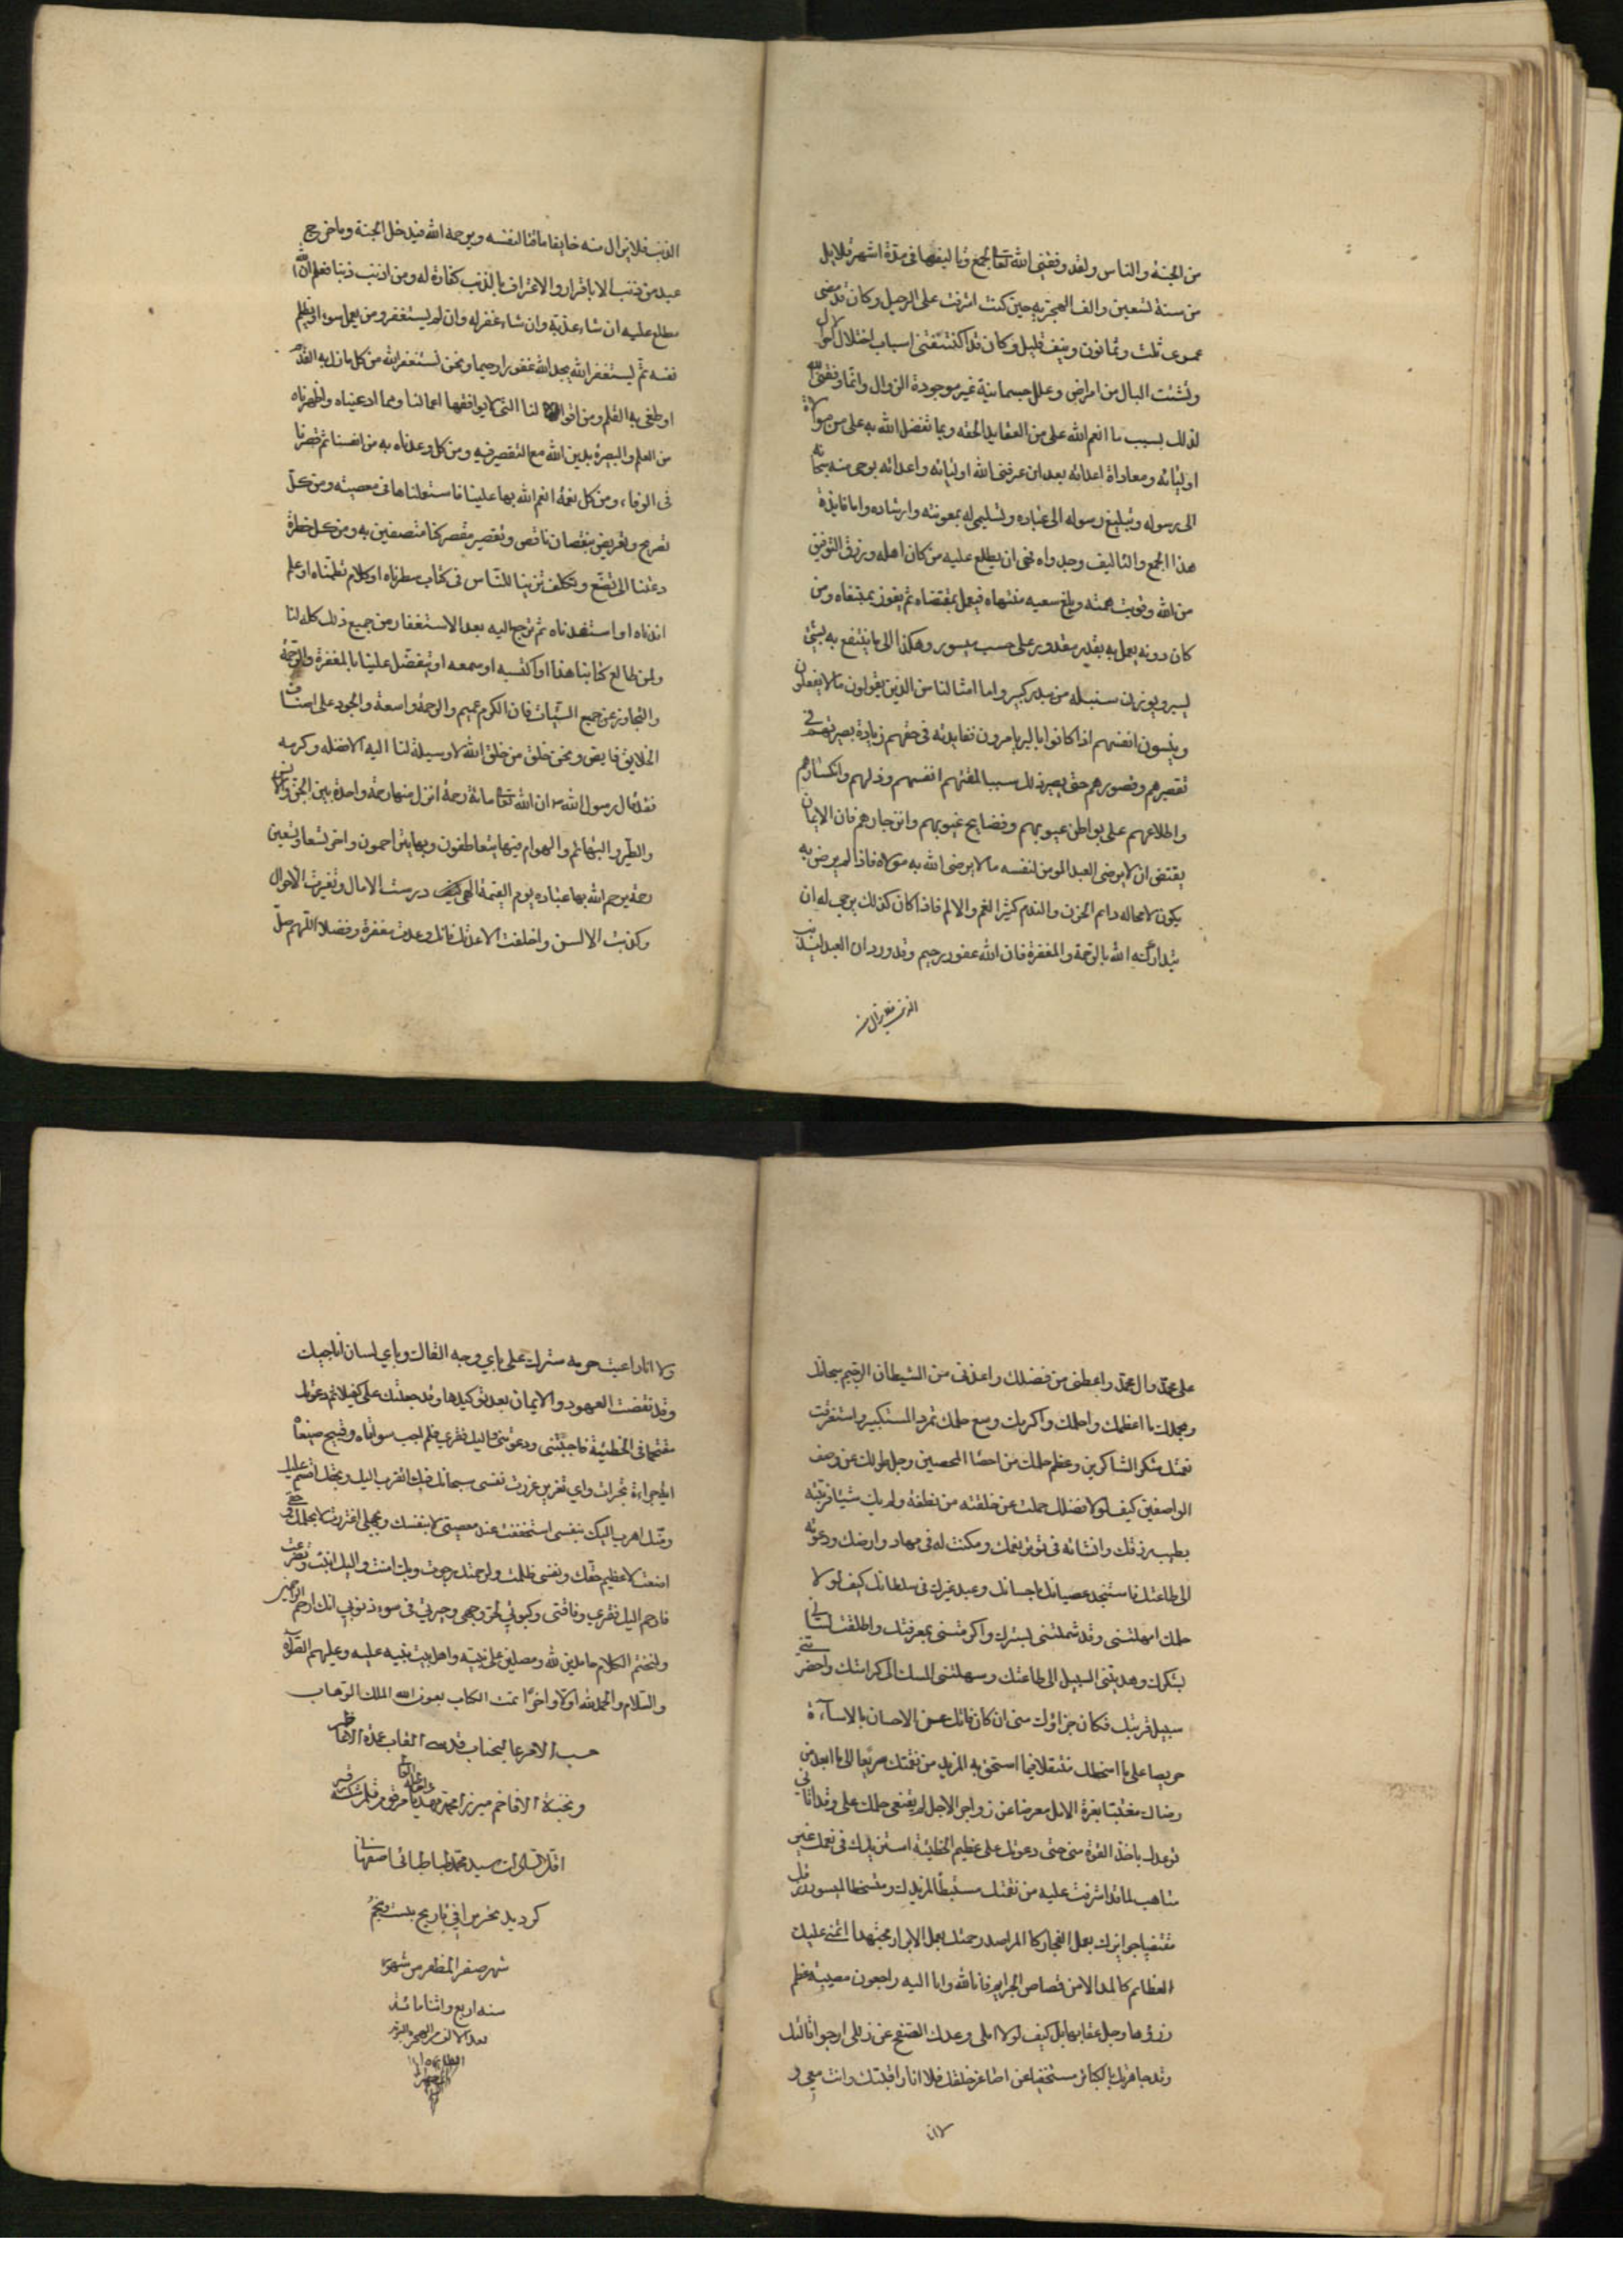 من الجنة والناس ولقد وفقنى الله تعالى لجمع وتاليفها فى مدة اشهر قلايل
من سنة تسعين والف الهجريه حين كنت اشرفت على الرحيل وكان قد مضى
عمرى ثلث وثمانون ونيف قليل وكان قد اكتنفتنى اسباب اختلال الحوال
وتشتت البال من امراض وعلل جسمانية غير موجودة الزوال وانما وفقنى الله
لذلك بسبب ما انعم الله على من العقايد الحقه وبما تفضل الله به على من موالاة
اوليائه ومعاداة اعدائه بعد ان عرفنى الله اوليائه واعدائه بوحى منه سبحانه
الى رسوله وتبليغ رسوله الى عباده وتسليمى له بمعونته وارشاده واما فايدة
هذا الجمع والتاليف وجدواه فهى ان يطلع عليه من كان اهله ورزق التوفيق
من الله وقويت همته وبلغ سعيه منتهاه فيعمل بمقتضاه ثم يفوز بمبتغاه ومن
كان دونه يعمل به بقدر مقدور على حسب ميسور وهكذا الى ما ينتفع به بشئ
يسير ويوزن سنبله من بيدر كبير واما امثالنا من الذين يقولون ما لا يفعلون
وينسون انفسهم اذا كانوا بالبر يامرون ففايدته فى حقهم زيادة بصيرتهم فى
تقصيرهم وقصورهم حتى يصير ذلك سببا لمقتهم انفسهم وذلهم وانكسارهم
واطلاعهم على بواطن عيوبهم وفضايح غيوبهم وانزجارهم فان الايمان
يقتضى ان لا يرضى العبد المومن لنفسه ما لا يرضى الله به مولاه فاذا لم يرض به
يكون لا محاله دايم الحزن والندم كثير الغم والالم فاذا كان كذلك يرجى له ان
يتداركه الله بالرحمة والمغفرة فان الله غفور رحيم وقد ورد ان العبد ليذنب
الذنب فلا يزال منه
الذنب فلا يزال منه خايفا ماقتا لنفسه ويرحمه الله فيدخل الجنة وما خرج
عبد من ذنب الا باقرار والاعتراف بالذنب كفارة له ومن اذنب ذنبا فعلم ان الله
مطلع عليه ان شاء عذبه وان شاء غفر له وان لم يستغفر ومن يعمل سوء او يظلم
نفسه ثم يستغفر الله يجد الله غفورا رحيما ونحن نستغفر الله من كل ما زل به القدم
او طغى به القلم ومن اقوالنا التى لا يوافقها اعمالنا ومما ادعيناه واظهرناه
من العلم والبصرة بدين الله مع التقصير فيه ومن كل وعدناه به من انفسنا ثم قصرنا
فى الوفاء ومن كل نعمة انعم الله بها علينا فاستعملناها فى معصيته ومن كل
تصريح وتعريض بنقصان ناقص وتقصير مقصر كنا متصفين به ومن كل خطرة
دعتنا الى تصنع وتكلف تزينا للناس فى كتاب سطرناه او كلام نظمناه او علم
افدناه او استفدناه ثم نرجع اليه بعد الاستغفار من جميع ذلك كله لنا
ولمن طالع كتابنا هذا او اكتسبه او سمعه او يتفضل علينا بالمغفرة والرحمة
والتجاوز عن جميع السيئات فان الكرم عميم والرحمة واسعة والجود على اصناف
الخلايق فايض ونحن خلق من خلق الله لا وسيلة لنا اليه الا فضله وكرمه
فقد قال رسول الله ص ان الله تعالى مائة رحمة انزل منها رحمة واحدة بين الجن والانس
والطير والبهائم والهوام فبها يتعاطفون وبها يتراحمون واخر تسعا وتسعين
رحمة يرحم الله بها عباده يوم القيمة الهى كيف درست الامال وتغيرت الاحوال
وكذبت الالسن واخلفت الا عدتك فانك وعدت مغفرة وفضلا اللهم صل
على محمد وال محمد واعطنى من فضلك واعذنى من الشيطان الرجيم سبحانك
وبحمدك ما اعظمك واحلمك واكرمك وسع حلمك تمرد المستكبير واستغرقت
نعمتك شكر الشاكرين وعظم حلمك من احصا المحصين وجل طولك عن وصف
الواصفين كيف لولا فضلك حملت عن خلقته من نطفة ولم يك شيئا فربيته
بطيب رزقك وانشاته فى توتر نعمك ومكنت له فى مهاد وارضك ودعوته
الى طاعتك فاستنجد عصيانك باحسانك وعبد غيرك فى سلطانك كيف لولا
حلمك امهلتنى وقد شملتنى بسترك واكرمتنى بمعرفتك واطلقت لسانى
بشكرك وهديتنى السبيل الى طاعتك وسهلتنى المسلك الى كرامتك واحضرتنى
سبيل قربتك فكان جزاؤك منى ان كان فاتك عن الاحسان بالاساءة
حريصا على ما اسخطك متنقلا فيما استحق به المزيد من نقمتك سريعا الى ما ابعد من
رضاك مغتبطا بغرة الامل معرضا عن زواجر الاجل لم يقنعى حلمك على وقد اتانى
توعدك باخذ القوة منى حتى دعوتك على عظيم الخطيئة استزيدك فى نعمك غير
متاهب لما قد اشرفت عليه من نقمتك مستبطا لمزيدك ومتسخطا لميسور رزقك
مقتضيا جوايزك بعمل الفجار كالمراصد رحمتك بعمل الابرار مجتهدا اتمنى عليك
العظايم كالمدل الامن قصاص الجرايم فانا لله وانا اليه راجعون مصيبة عظم
رزؤها وجل عقابها بل كيف لولا املى وعدك الصفح عن زللى ارجو اقالتك
وقد جاهرتك بالكبائر مستخفيا عن اصاغر خلقك فلا انا راقبتك وانت معى و
لا انا
ولا انا راعيت حرمه سترك على باي وجه القاك وباي لسان اناجيك
وقد نقضت العهود والايمان بعد توكيدها وقد جعلتك على كفيلا ثم دعوتك
مقتحما فى الخطيئة فاجبتنى ودعوتنى واليك فقري فلم اجب سواتاه وقبيح صنيعاه
اية جراءة تجرات واي تغرير غررت نفسى سبحانك فبك اتقرب اليك وبحقك اقسم عليك
ومنك اهرب اليك بنفسى استخففت عند معصيتى لا بنفسك وبجهلى اغتررت لا بحلمك وحقى
اضعت لا عظيم حقك ونفسى ظلمت ولرحمتك رجوت وبك امنت واليك انبت وتضرعت
فارحم اليك فقري وفاقتى وكبوتي لحر وجهى وحيرتي فى سوء ذنوبي انك ارحم الراحمين
ولنختم الكلام حامدين لله ومصلين على نبيه واهل بيت نبيه عليه وعليهم الصلوة
والسلام والحمد لله اولا واخرا تمت الكتاب بعون الله الملك الوهاب
حسب الامر عاليجناب قدسى القاب عمدة الاعاظم
ونخبة الافاخم ميرزا محمد مهديا
اقل السادات سيد محمد طباطبائى اصفهانى
كرديد تحريرا فى تاريخ بيست وپنجم
شهر صفر المظفر من شهور
سنه اربع واثنا مائة
بعد الالف من الهجرة النبويه